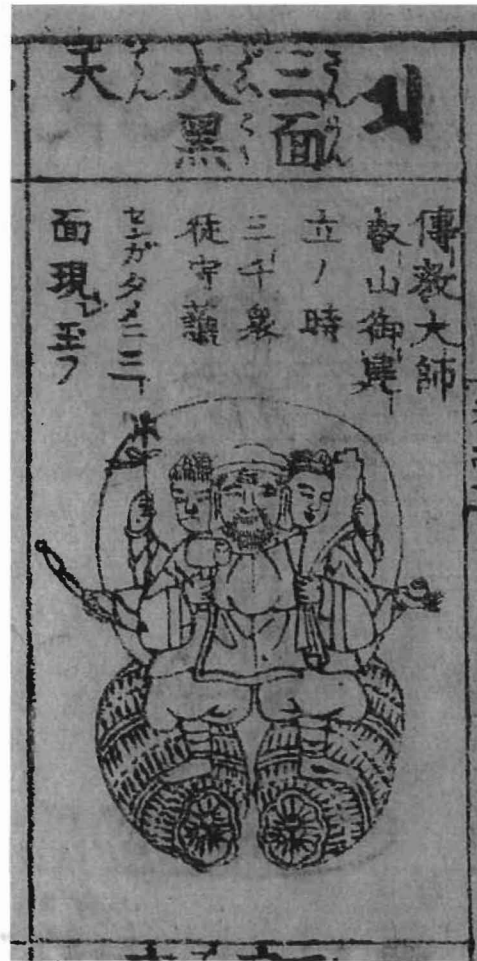 三面
大黑
天
傳教大師
叡山御建
立ノ時
三千衆
徒守護
センガタメニ三
面現ジ玉フ